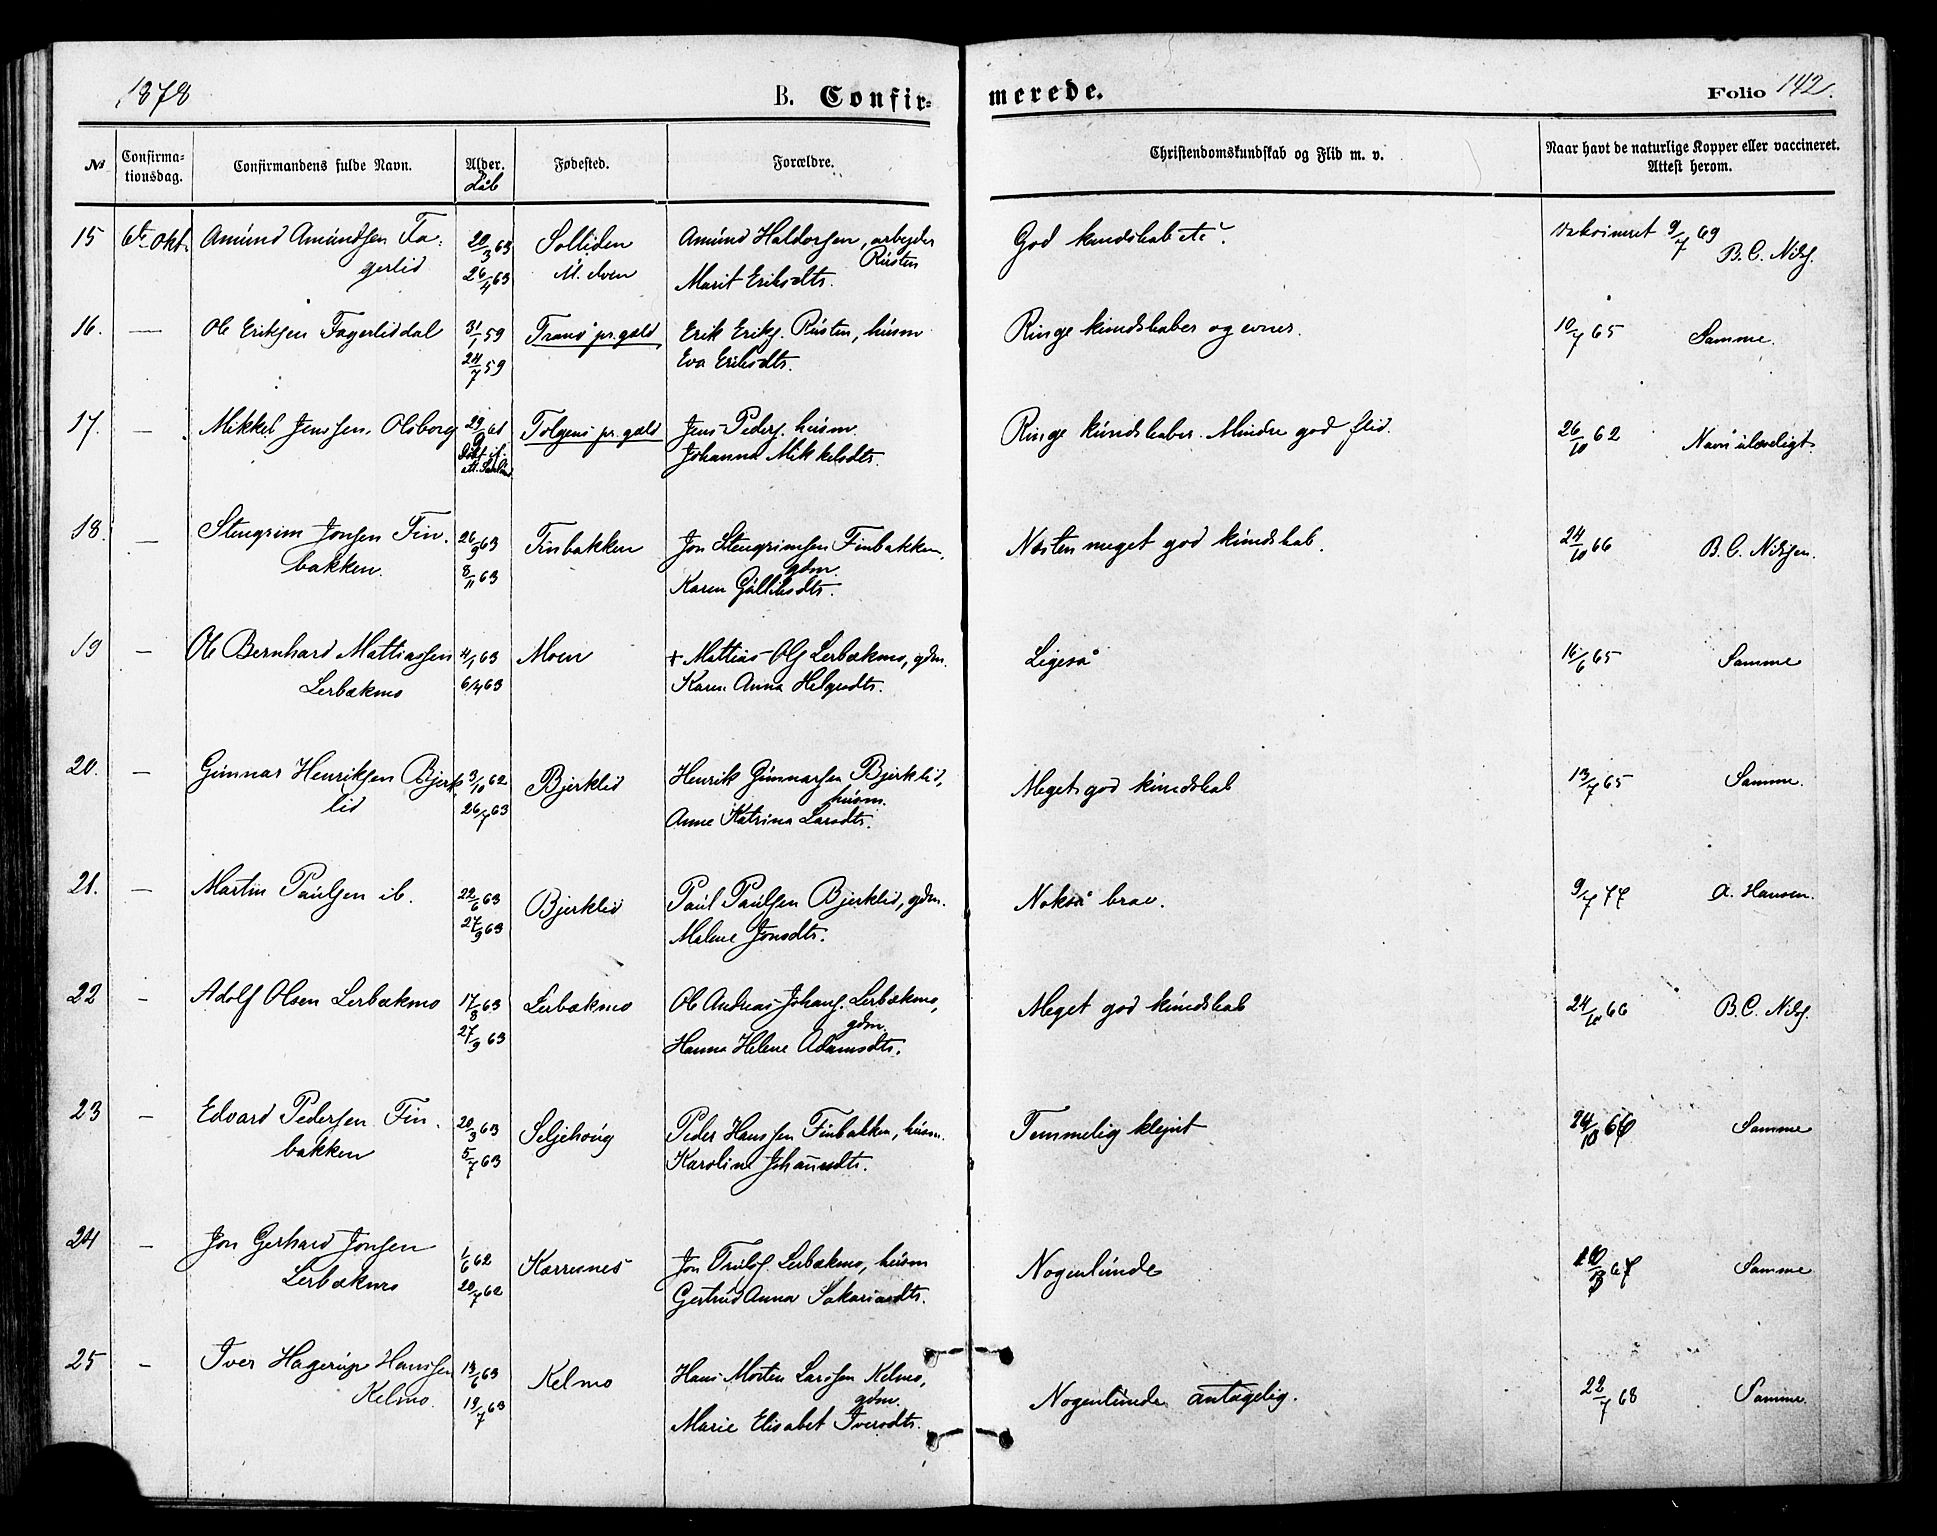 1878
B. Confirmerede.
Folio 142.
№
Confirmationsdag.
Confirmandens fulde Navn.
Alder.
Dåb
Fødested.
Forældre.
Christendomskundskab og Flid m. v.
Naar havt de naturlige Kopper eller vaccineret.
Attest herom.
15 6te Okt. Amund Amundsen Fa- 20/3 63 Solliden Amund Haldorsen, arbejder God kundskab etc. Vakcineret 9/7 69
gerlid 26/4 63 M. elven Marit Eriksdtr. Rusten B. C. Nilss.
16. — Ole Eriksen Fagerliddal 31/1 59 Tranø pr.gæld Erik Eriks. Rusten, husm Ringe kundskaber og evner. 10/7 65 Samme.
24/7 59 Eva Eriksdtr.
17. — Mikkel Jenssen Olsborg 29/9 61 Tolgens pr.gæld Jens Peders. husm Ringe kundskaber. Mindre god flid. 26/10 62 Navn ulæseligt.
Johanna Mikkelsdtr.
18. — Stengrim Jonsen Fin- 26/9 63 Finbakken Jon Stengrimsen Finbakken, Næsten meget god kundskab. 24/10 66 B. C. Nilssen.
bakken. 8/11 63 gdm.
Karen Gulliksdtr.
19 — Ole Bernhard Mattiassen 4/1 63 Moen + Mattias Ols. Lerbækmo, gdm. Ligeså 16/6 65 Samme
Lerbækmo 6/4 63 Karen Anna Helgesdtr.
20. — Gunnar Henriksen Bjerk- 3/10 62 Bjerklid Henrik Gunnarsen Bjerklid, Meget god kundskab 13/7 65 Samme.
lid 26/7 63 husm.
Anne Katrina Larsdtr.
21. — Martin Paulsen ib. 22/6 63 Bjerklid Paul Paulsen Bjerklid, gdm. Nokså brav. 9/7 77 A. Hansen.
27/9 63 Malene Jonsdtr.
22 — Adolf Olsen Lerbækmo 17/8 63 Lerbækmo Ole Andreas Johans. Lerbækmo, Meget god kundskab 24/10 66 B. C. Nilss.
27/9 63 gdm.
Hanna Helene Adamsdtr.
23 — Edvard Pedersen Fin- 20/3 63 Seljehoug Peder Hanssen Finbakken, husm. Temmelig klejnt 24/10 66 Samme
bakken 5/7 63 Karoline Johannsdtr.
24 — Jon Gerhard Jonsen 1/6 62 Kærresnes Jon Trulss. Lerbækmo, husm Nogenlunde 67 Samme
Lerbækmo 20/7 62 Gertrud Anna Sakariasdtr.
25 — Iver Hagerup Hanssen 13/6 63 Kelmo Hans Morten Larssen Kelmo, Nogenlunde antagelig. 22/7 68 Samme.
Kelmo. 19/7 63 gdm.
Marie Elisabet Iversdtr.